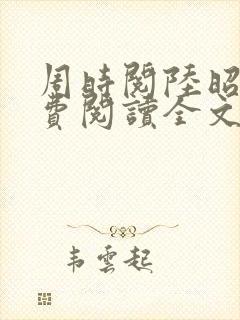 周時閱陸昭
費閱讀全文
韋雲起